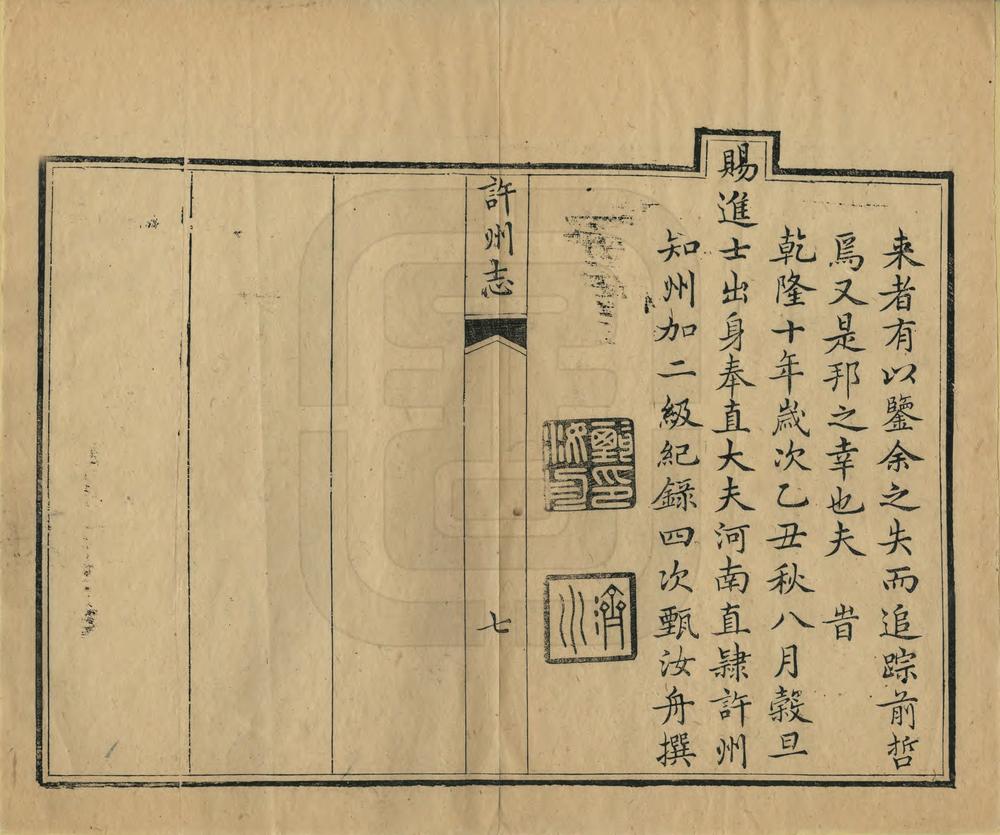 来者有以鑒余之失而追踪前哲
焉又是邦之幸也夫　旹
乾隆十年歲次乙丑秋八月穀旦
賜進士出身奉直大夫河南直隸許州
知州加二級紀錄四次甄汝舟撰
濟川
許州志
七